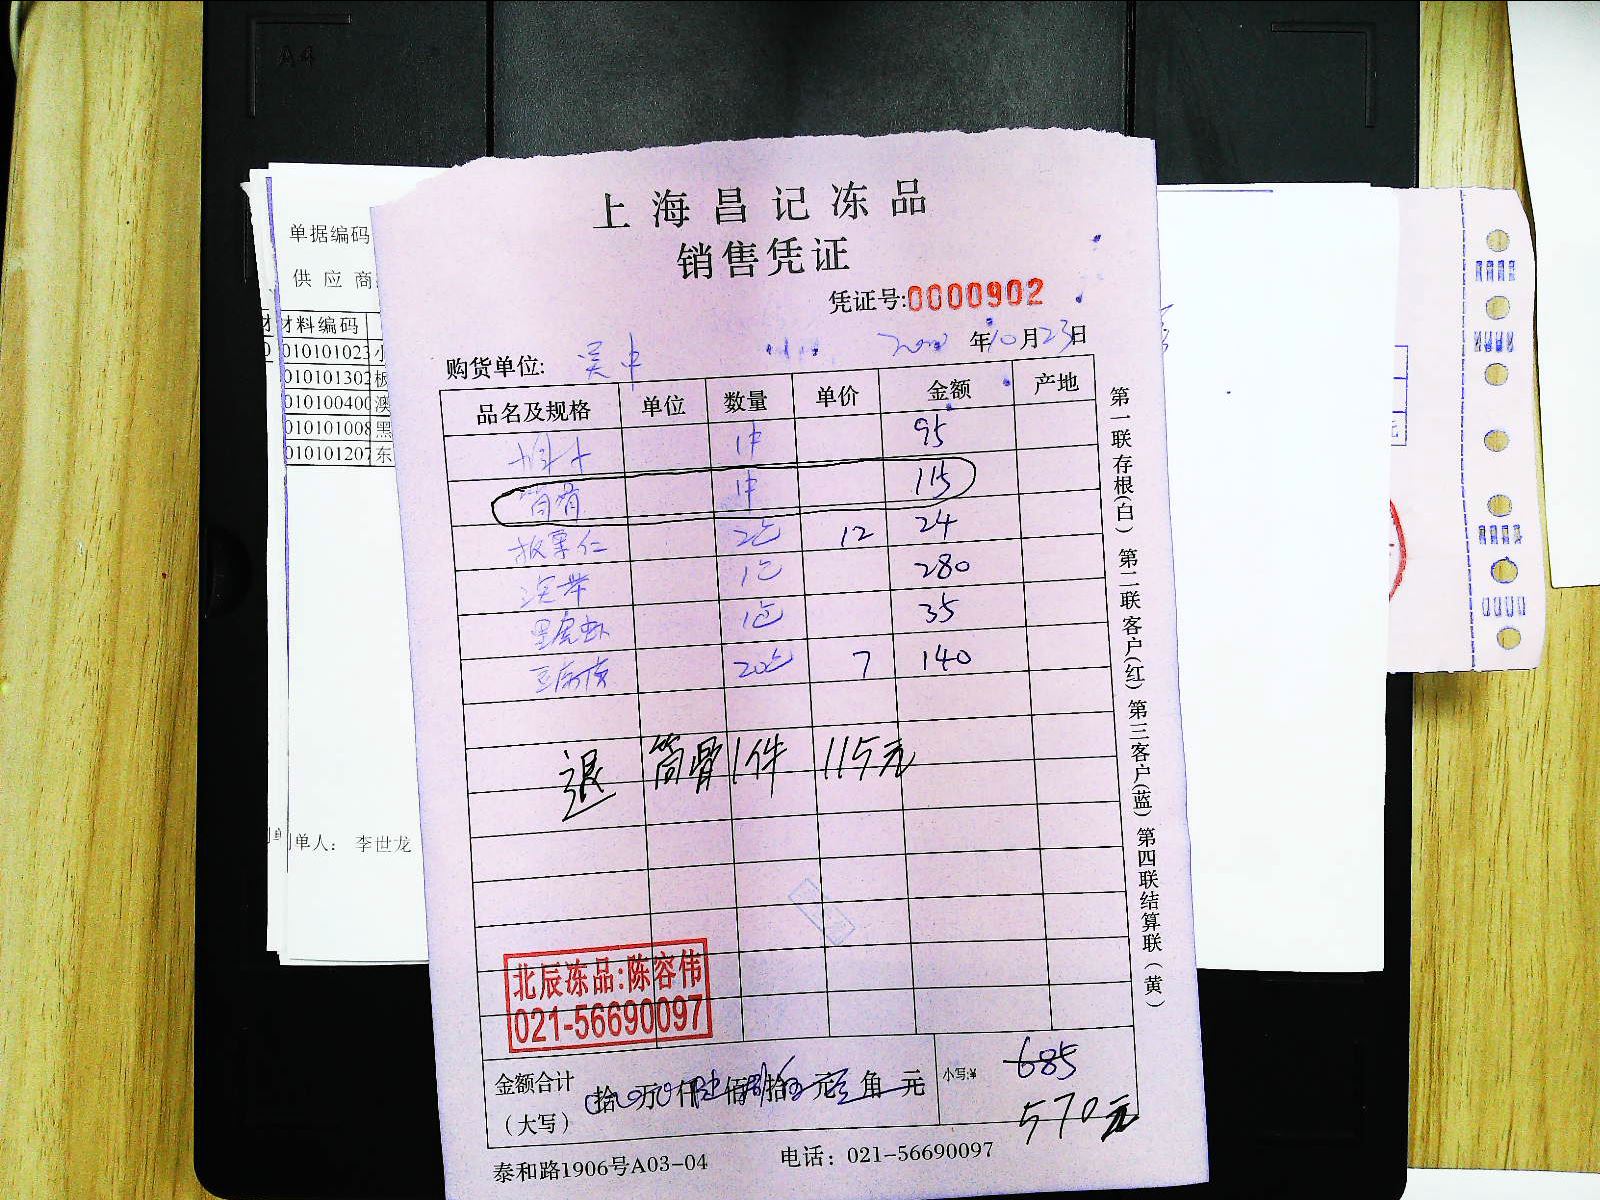 A4
单据编码
供应商
材料编码
010101023 小
010101302 板
010100400 澳
010101008 黑
010101207 东
单人： 李世龙
上海昌记冻品
销售凭证
凭证号:0000902
年10月23日
购货单位: 吴中
品名及规格 单位 数量 单价 金额 产地
1件 95
筒骨 1件 115
板栗仁 2包 12 24
1包 280
黑虎虾 1包 35
20包 7 140
退 筒骨1件 115元
北辰冻品:陈容伟
021-56690097
金额合计
（大写）
拾 万 仟 佰 拾 元 角 元
小写:¥ 685
570元
泰和路1906号A03-04 电话：021-56690097
第一联存根(白) 第二联客户(红) 第三客户(蓝) 第四联结算联(黄)